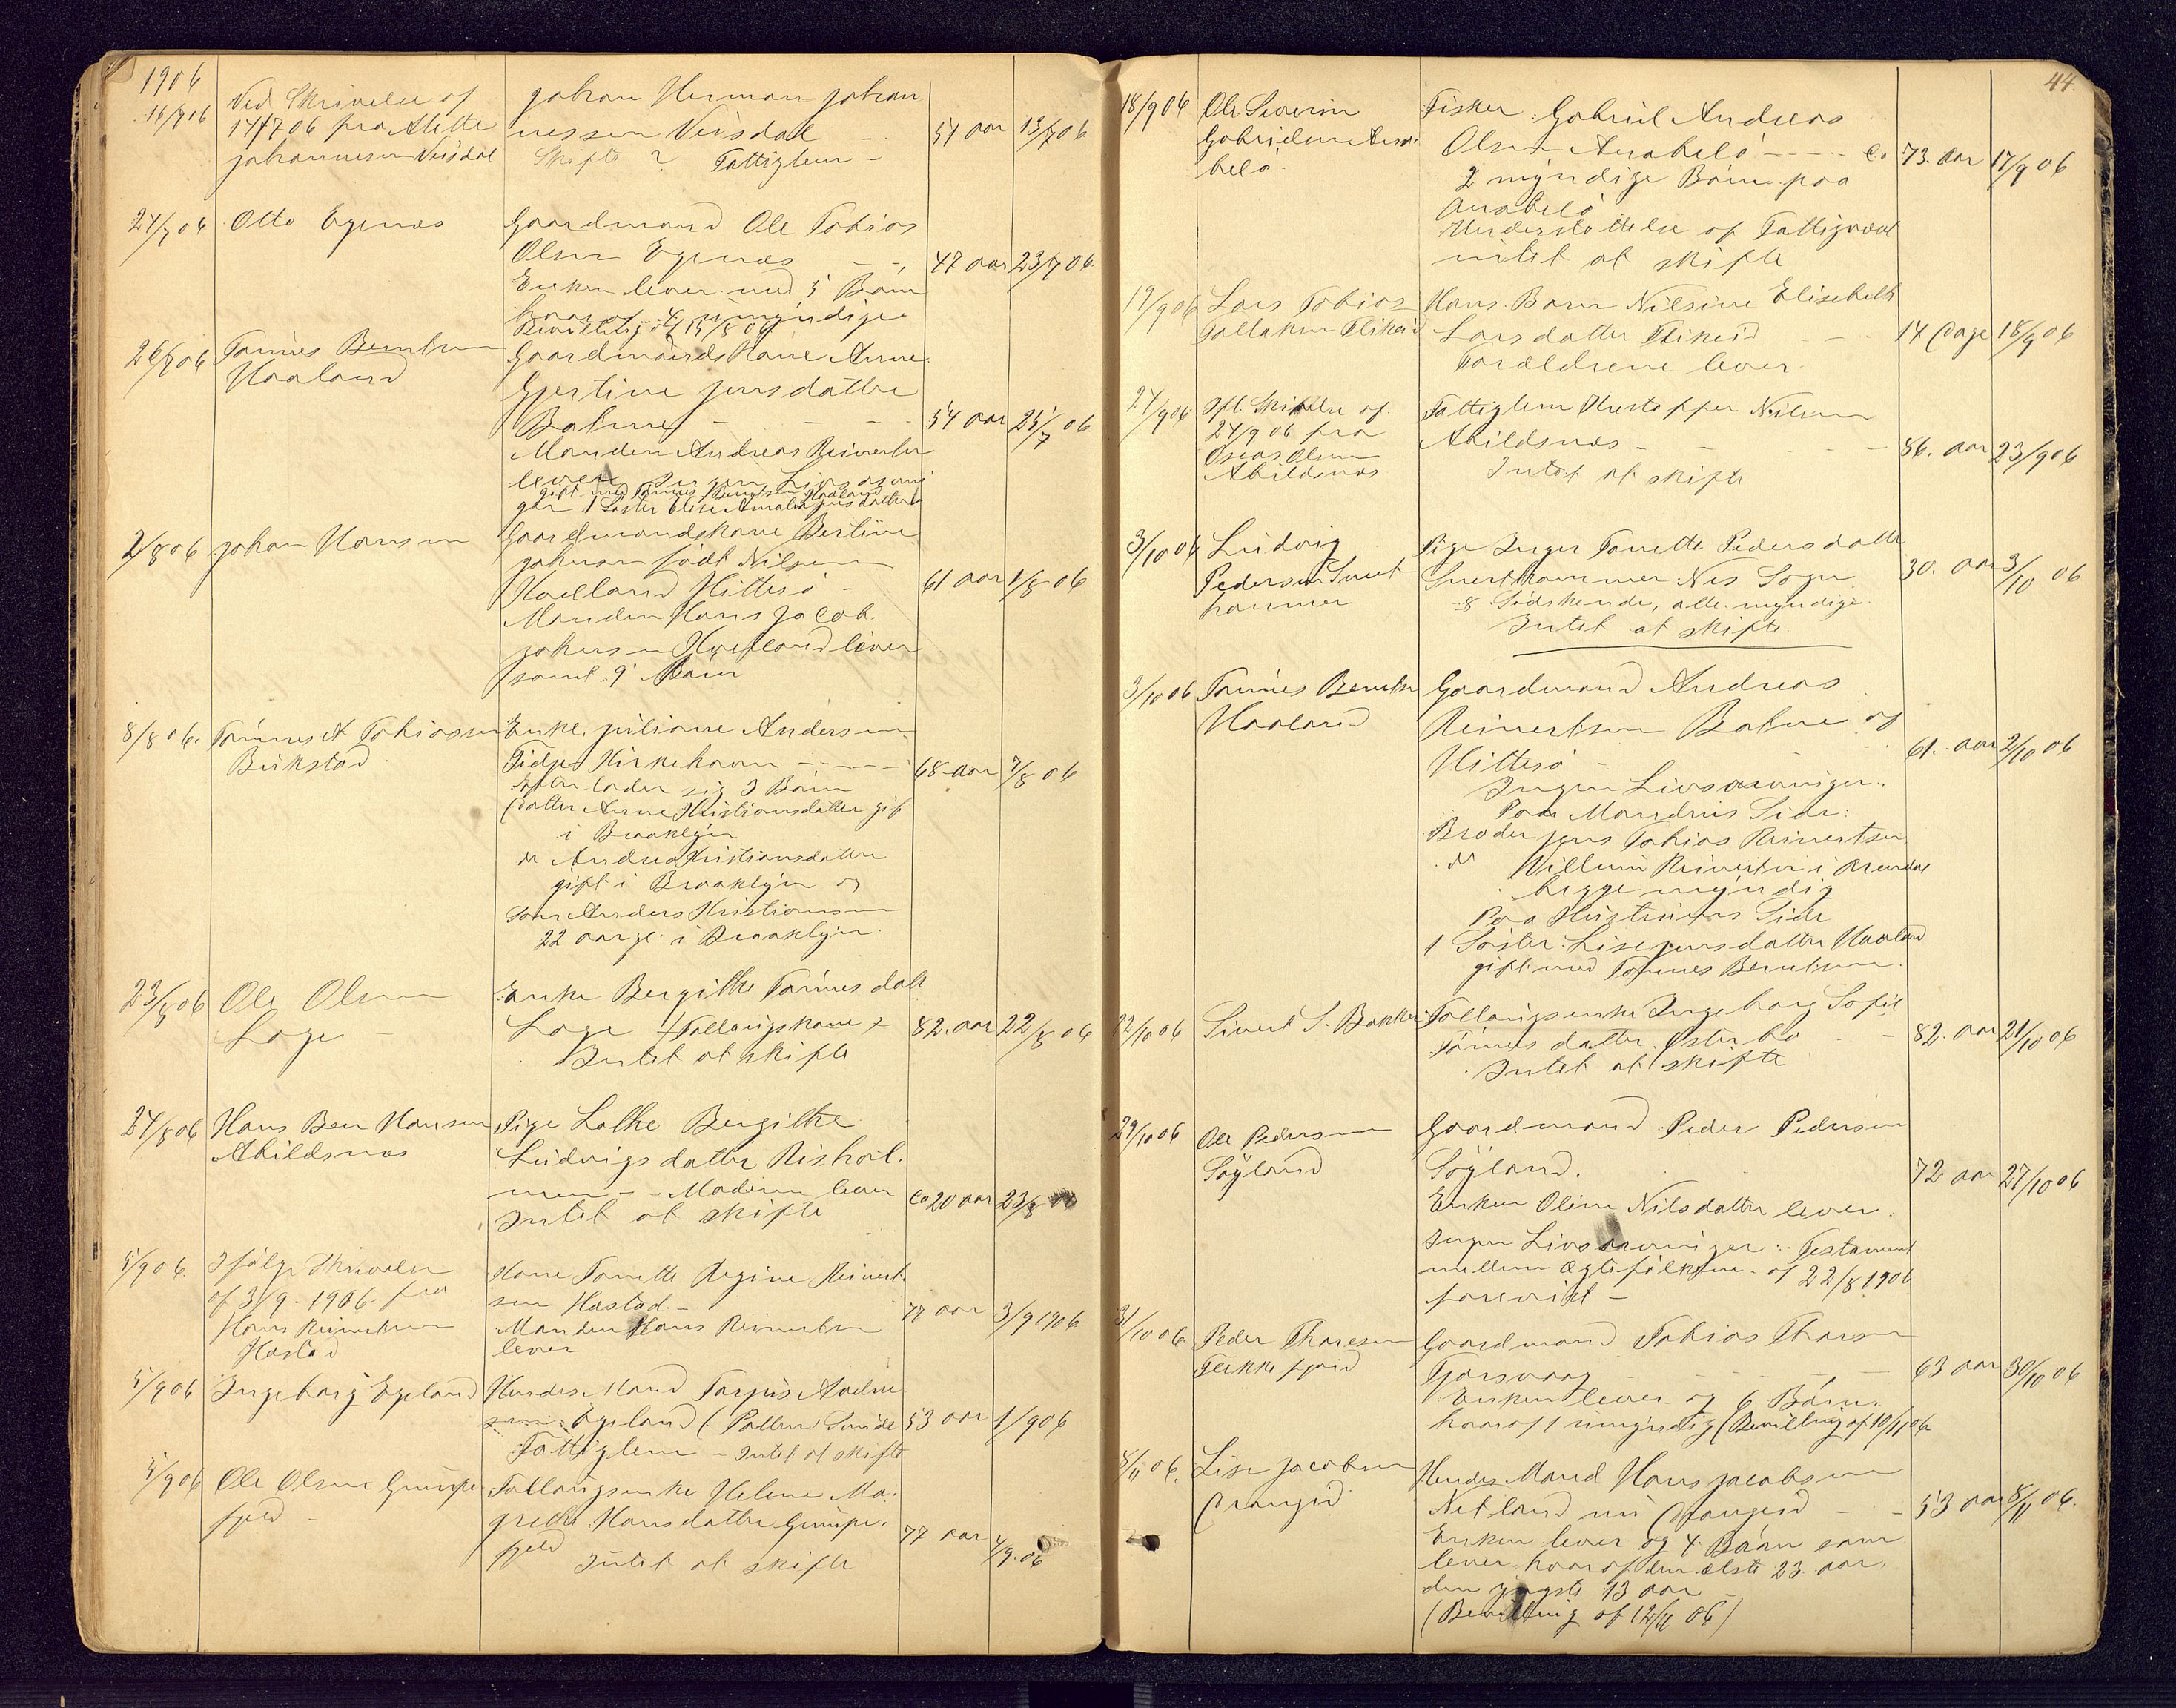 1906
16/7 06 Ved Skrivelse af Johan Herman Johan
14/7 06 fra Alette nessen Veisdal - 51 aar 13/7 06
Johannesen Veisdal Skifte ? Fattiglem -
24/7 06 Otto Egenæs Gaardmand Ole Tobias
Olsen Egenæs - - 47 aar 23/7 06.
Enken lever med 5 Børn
hvoraf 4 umyndige
Bevilling af 15/8 06
26/7 06 Tønnes Berntsen Gaardmands Kone Anne
Haaland Gjertine Jensdatter
- - - 54 aar 25/7 06
Manden Andreas Reinertsen
lever Ingen Livsarvin
gift med Tønnes Berntsen Haaland
1 Søster Elise Amalia Jensdatter
2/8 06 Johan Hansen Gaardmandskone Bertine
Johnsen født Nilsen
Hitterø - 61 aar 1/8 06
Manden Hans Jacob
lever
samt 9 Børn
8/8 06. Tønnes A Tobiassen Enke Juliane Andersen
Bukstad Kirkehavn - - - - - 68 aar 7/8 06
Efter lader sig 3 Børn
(datter Anne Kristiansdatter gift
i Brooklyn
do Andrea Kristiansdatter
gift i Brooklyn og
Søn Anders Kristiansen
22 aar gl. i Brooklyn.
23/8 06 Ole Olsen Enke Bergithe Tønnesdatt
Loge - Loge Føllaugskone 82. aar 22/8 06
Intet at skifte
24/8 06 Hans Ber Hansen Pige Lathe Bergithe
Abildsnæs Ludvigsdatter Rishol
men - - Moderen lever Ca 20 aar 23/8 06
Intet at skifte
5/9 06. Ifølge Skrivelse Kone Tonette Regine Reinert
af 3/9 - 1906 fra sen Hæstad. - 77 aar 3/9 1906
Hans Reinertsen Manden Hans Reinertsen
Hæstad lever
5/9 06 Ingeborg Egeland Hendes Mand
Egeland ( 53 aar 1/9 06
Fattiglem - Intet at skifte
5/9 06 Ole Olsen Gumpe Føllaugsenke Helene Ma
fjeld - grethe Hansdatter Gumpe
fjeld 77 aar 4/9. 06
Intet at skifte
44.
18/9 06 Ole Severin Fisker Gabriel Andreas
Gabrielsen Anabe Olsen Anabelø - - - - Ca 73. Aar 17/9 06
belø 2 myndige Børn paa
Anabelø
Understøttelse af Fattigvæsenet
intet at skifte
19/9 06 Lars Tobias Hans Barn Nilsine Elisebeth
Flikeid Larsdatter Flikeid - - 14 Dage 18/9 06
Forældrene lever.
24/9 06 Ifl. Skrivelse af Fattiglem Kristoffer Nilsen
24/9 06 fra Abildsnæs - - - - 86. aar 23/9 06
Oseas Olsen Intet at skifte
Abildsnæs
3/10 06 Ludvig Pige Inger Tonette Pedersdatter
Pedersen Svart Svarthammer Nes Sogn 30. aar 3/10 06
hammer 8 Sødskende, alle myndige.
Intet at skifte.
3/10 06 Tønnes Berntsen Gaardmand Andreas
Haaland Reinertsen af
Hitterø - 61. aar 2/10 06
Ingen Livsarvinger.
Paa Mandens Side:
Broder Jens Tobias Reinertsen
do Villum Reinertsen i Arendal
begge myndig
Paa Hustruens Side
1 Søster Lise Jensdatter Haaland
gift med Tønnes Berntsen.
22/10 06 Sivert S. Bakke Føllaugsenke Ingeborg Sofie
Tønnesdatter Østerbø - - 82. aar 21/10 06
Intet at skifte
29/10 06 Ole Pedersen Gaardmand Peder Pedersen
Søyland Søyland. 72 aar 27/10 06
Enken Oline Nilsdatter lever.
Ingen Livsarvinger. Testament
mellem Ægtefolkene af 22/8 1906
forevist -
31/10 06 Peder Thoresen Gaardmand Tobias Thorsen
Flekkefjord Tjørsvaag - - - - - 63 aar 30/10 06
Enken lever og 6 Børn.
hvoraf 1 umyndig (Bevilling af 10/11 06
8/11 06. Lise Jacobsen Hendes Mand Hans Jacobsen
Drangeid Netland nu Drangeid - - 53 aar 8/11 06.
Enken lever og 4 Børn som
lever hvoraf den ælste 23 aar.
den yngste 13 aar -
(Bevilling af 12/11 06)